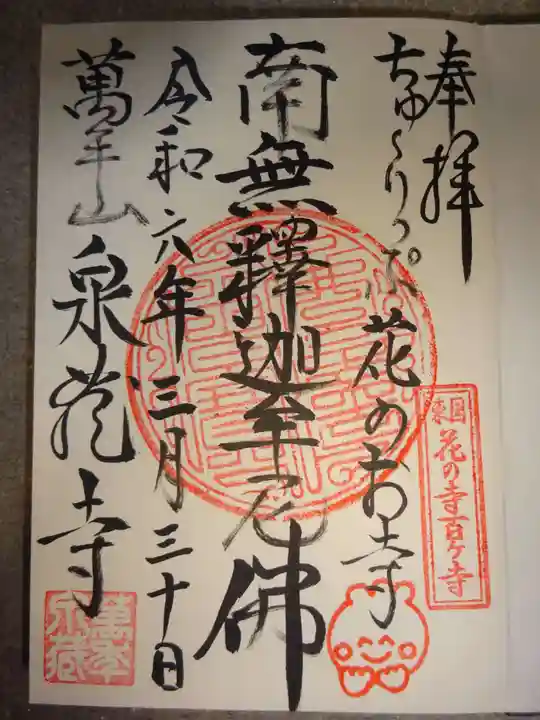 奉拝
ちゅうりっぷ花のお寺
東国花の寺百ヶ寺
南無釋迦牟尼佛
令和六年三月三十日
萬年山 泉蔵寺